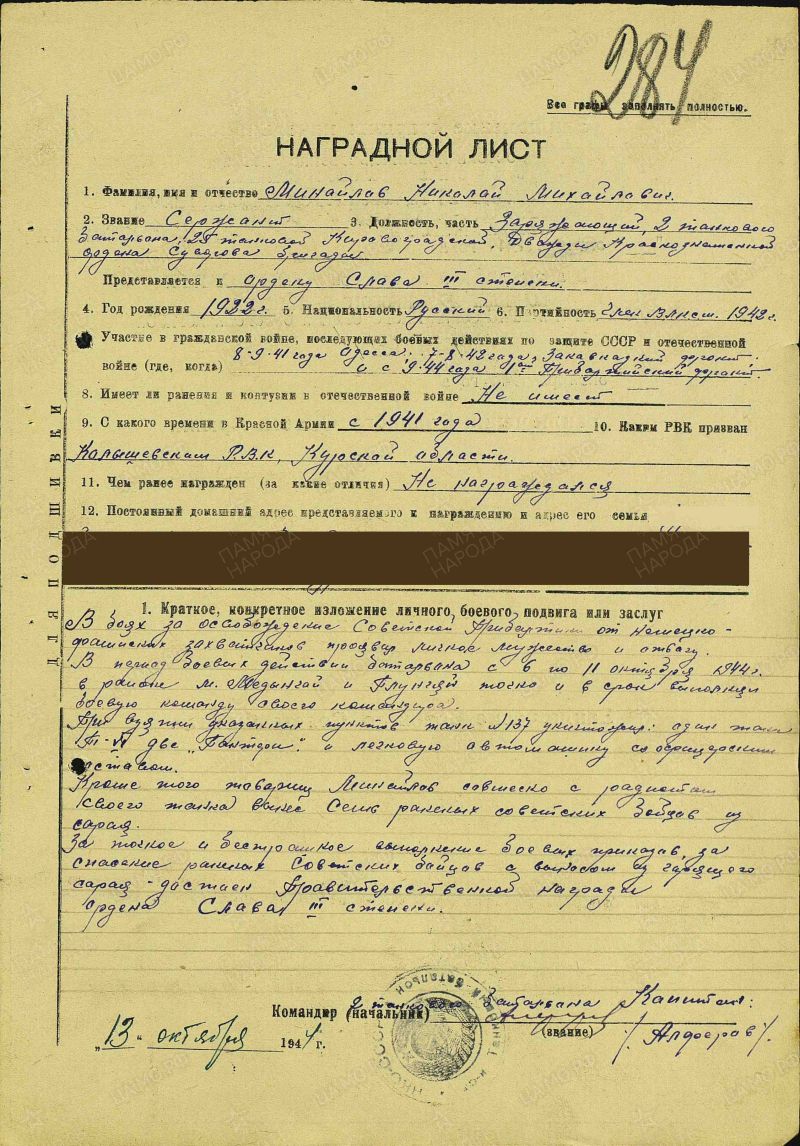 284
Все графы заполнять полностью.
НАГРАДНОЙ ЛИСТ
1. Фамилия, имя и отчество Минайлов Николай Михайлович.
2. Звание Сержант 3. Должность, часть Заряжающий, 2 танкового
батальона, 25 танковой Кировоградской, Дважды Краснознаменной
ордена Суворова бригады
Представляется к ордену Слава III степени.
4. Год рождения 1922 г. 5. Национальность Русский 6. Партийность член ВЛКСМ. 1942 г.
Участие в гражданской войне, последующих боевых действиях по защите СССР и отечественной
8-9-41 года Одесса; 7-8-42 года, Закавказский фронт.
войне (где, когда) и с 9-44 года 1ый Прибалтийский фронт.
8. Имеет ли ранения и контузии в отечественной войне Не имеет
9. С какого времени в Красной Армии с 1941 года 10. Каким РВК призван
Р.В.К, Курской области.
11. Чем ранее награжден (за какие отличия) Не награждался
12. Постоянный домашний адрес представляемого к награждению и адрес его семьи
ДЛЯ ПОДШИВКИ
ПАМЯТЬ НАРОДА
1. Краткое, конкретное изложение личного боевого подвига или заслуг
В боях за освобождение Советской Прибалтики от немецко-
фашистских захватчиков проявил личное мужество и отвагу.
В период боевых действий батальона с 6 по 11 октября 1944 г.
в районе м. Медынгай и Плунгяй точно и в срок выполнял
боевую команду своего командира.
При взятии указанных пунктов танк №137 уничтожил: один танк
Т-VI две "Пантеры" и легковую автомашину с офицерским
составом.
Кроме того товарищ Минайлов совместно с радистом
своего танка вынес семь раненых советских бойцов из
сарая.
За точное и бесстрашное выполнение боевых приказов, за
спасение раненых Советских бойцов с выносом из горящего
сарая - достоин Правительственной награды
ордена Слава III степени.
Командир (начальник) 2 танкового батальона Капитан:
(звание) /Алферов/.
"13" октября 1944 г.